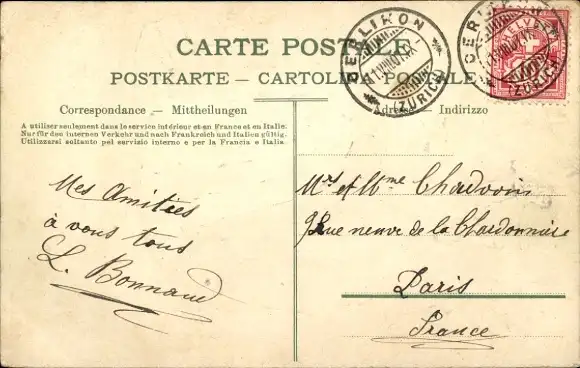 CARTE POSTALE
POSTKARTE — CARTOLINA POSTALE
OERLIKON
(ZÜRICH)
OERLIKON
(ZÜRICH)
HELVETIA
Correspondance — Mittheilungen
A utiliser seulement dans le service intérieur et en France et en Italie.
Nur für den internen Verkehr und nach Frankreich und Italien gültig.
Utilizzarsi soltanto pel servizio interno e per la Francia e Italia
Adresse — Indirizzo
Mes Amitiés
à vous tous
L. Bonnaud
Mrs et Mme Chauvoin
Rue neuve de la Chardonnière
Paris
France